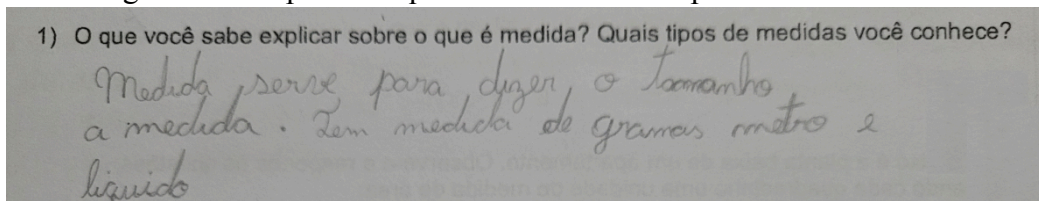 1) O que você sabe explicar sobre o que é medida? Quais tipos de medidas você conhece?
Medida, serve para, dizer, o Tamanho,
a medida. Tem medida de gramas metro e
liquido